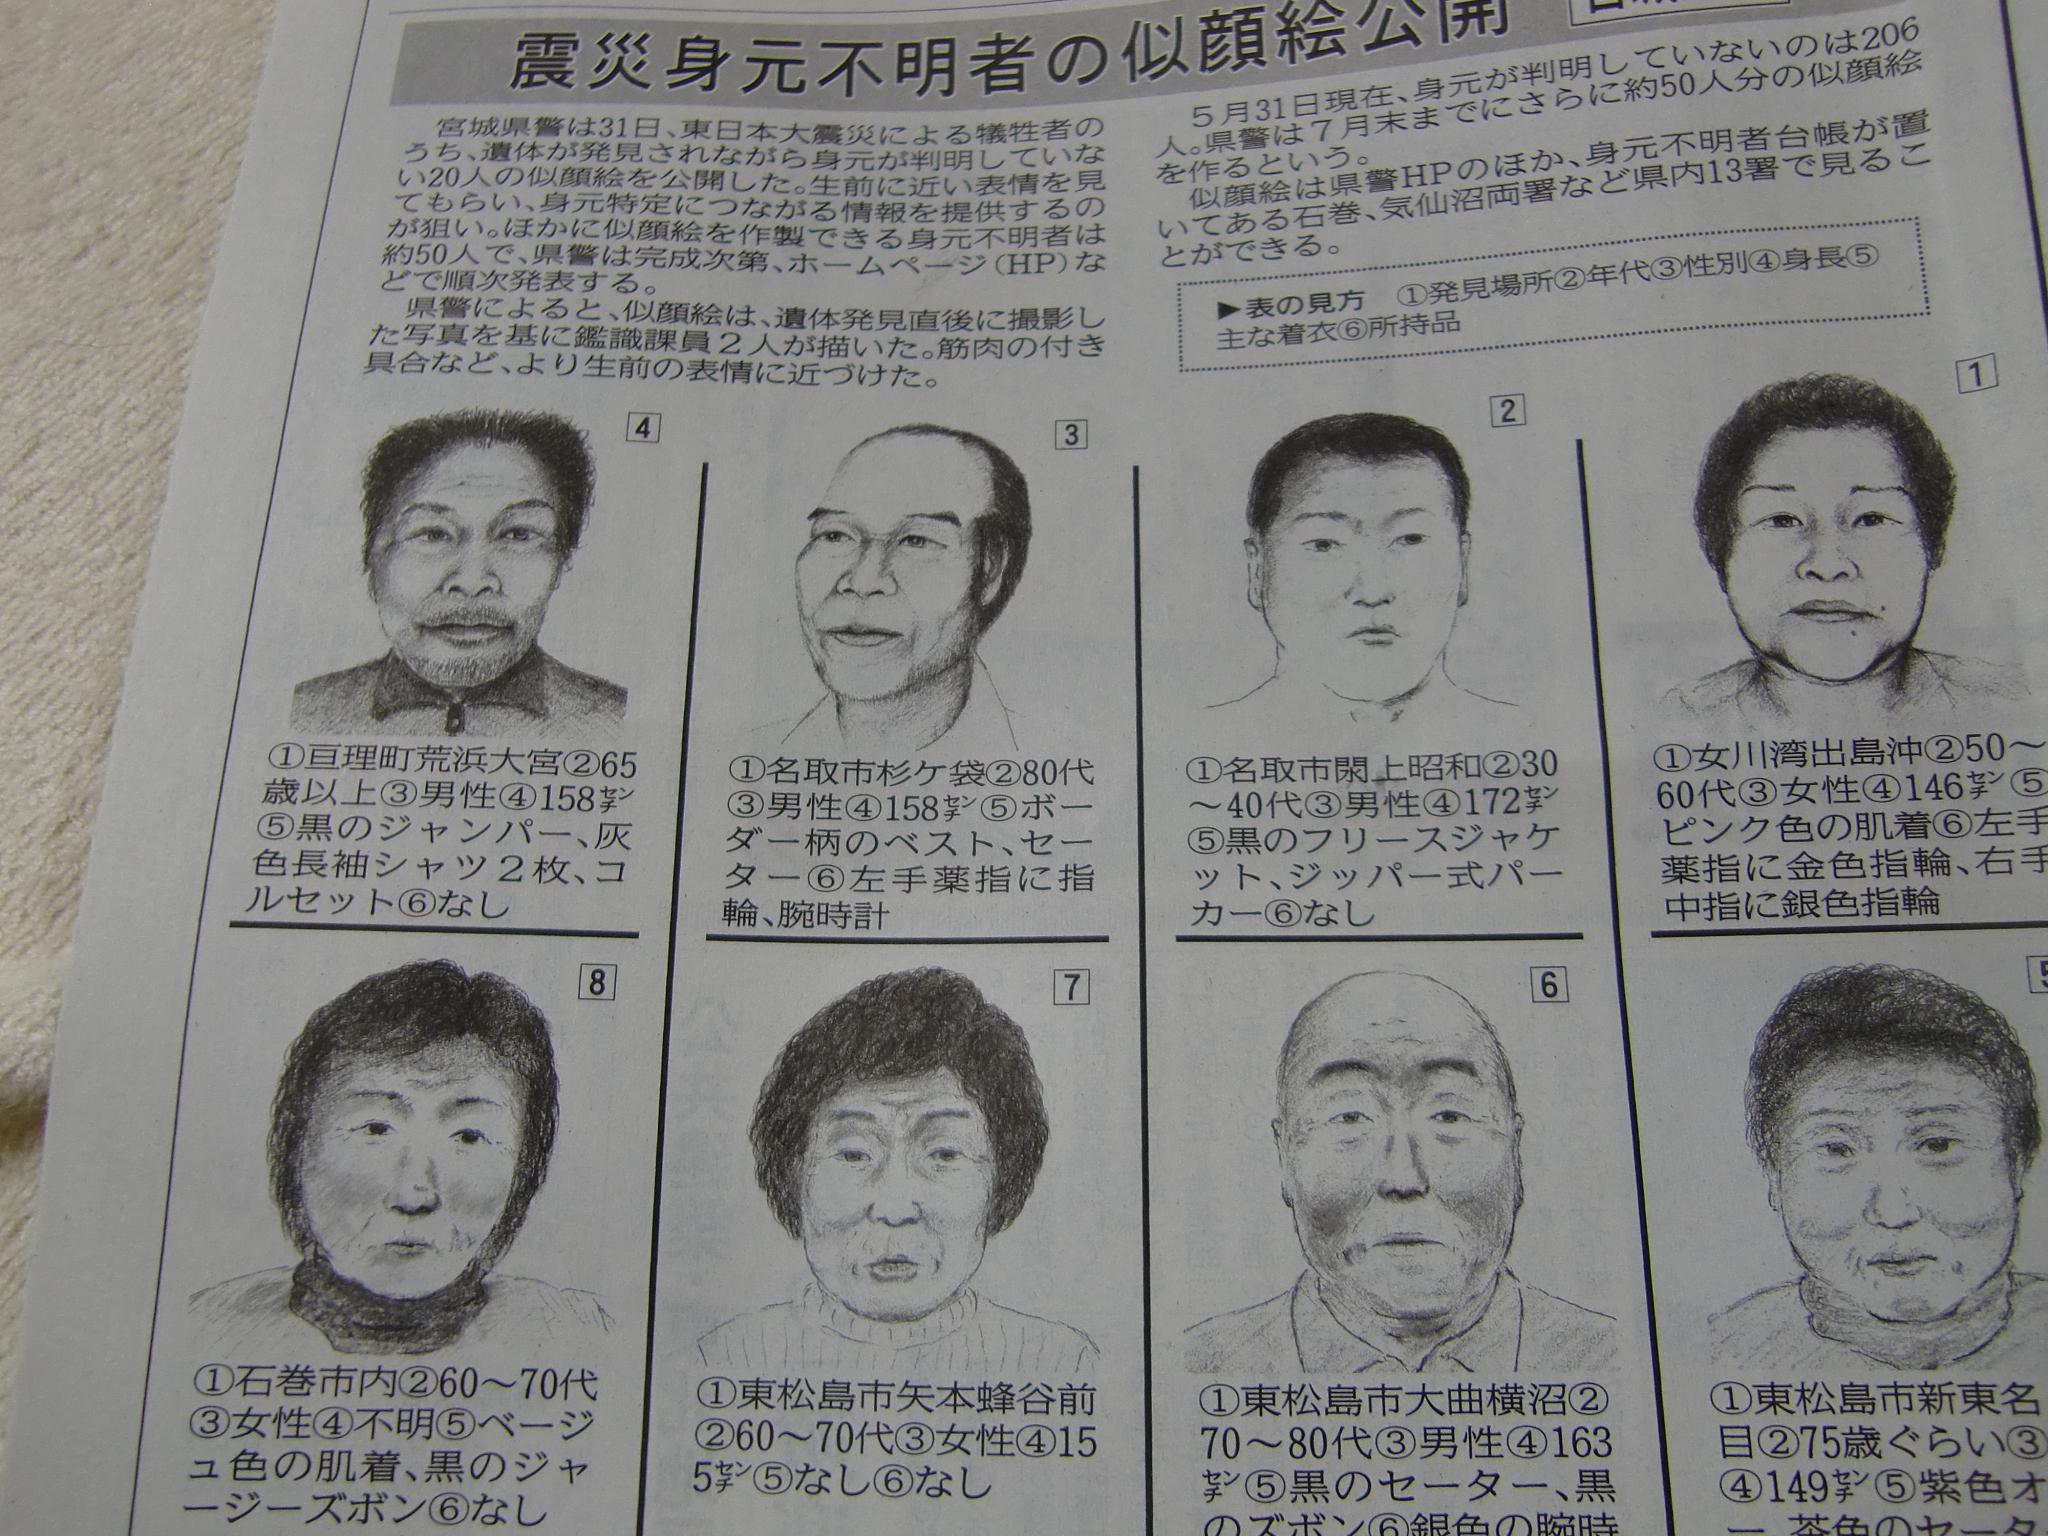 震災身元不明者の似顔絵公開
宮城県警は31日、東日本大震災による犠牲者の
うち、遺体が発見されながら身元が判明していな
い20人の似顔絵を公開した。生前に近い表情を見
てもらい、身元特定につながる情報を提供するの
が狙い。ほかに似顔絵を作製できる身元不明者は
約50人で、県警は完成次第、ホームページ(HP)な
どで順次発表する。
県警によると、似顔絵は、遺体発見直後に撮影し
た写真を基に鑑識課員2人が描いた。筋肉の付き
具合など、より生前の表情に近づけた。
5月31日現在、身元が判明していないのは206
人。県警は7月末までにさらに約50人分の似顔絵
を作るという。
似顔絵は県警HPのほか、身元不明者台帳が置
いてある石巻、気仙沼両署など県内13署で見るこ
とができる。
▶表の見方 ①発見場所②年代③性別④身長⑤
主な着衣⑥所持品
1
①女川湾出島沖②50〜
60代③女性④146㌢⑤
ピンク色の肌着⑥左手
薬指に金色指輪、右手
中指に銀色指輪
2
①名取市閖上昭和②30
〜40代③男性④172㌢
⑤黒のフリースジャケ
ット、ジッパー式パー
カー⑥なし
3
①名取市杉ケ袋②80代
③男性④158㌢⑤ボー
ダー柄のベスト、セー
ター⑥左手薬指に指
輪、腕時計
4
①亘理町荒浜大宮②65
歳以上③男性④158㌢
⑤黒のジャンパー、灰
色長袖シャツ2枚、コ
ルセット⑥なし
5
①東松島市新東名
目②75歳ぐらい③
④149㌢⑤紫色オ
ー、茶色のセータ
6
①東松島市大曲横沼②
70〜80代③男性④163
㌢⑤黒のセーター、黒
のズボン⑥銀色の腕時
7
①東松島市矢本蜂谷前
②60〜70代③女性④15
5㌢⑤なし⑥なし
8
①石巻市内②60〜70代
③女性④不明⑤ベージ
ュ色の肌着、黒のジャ
ージーズボン⑥なし